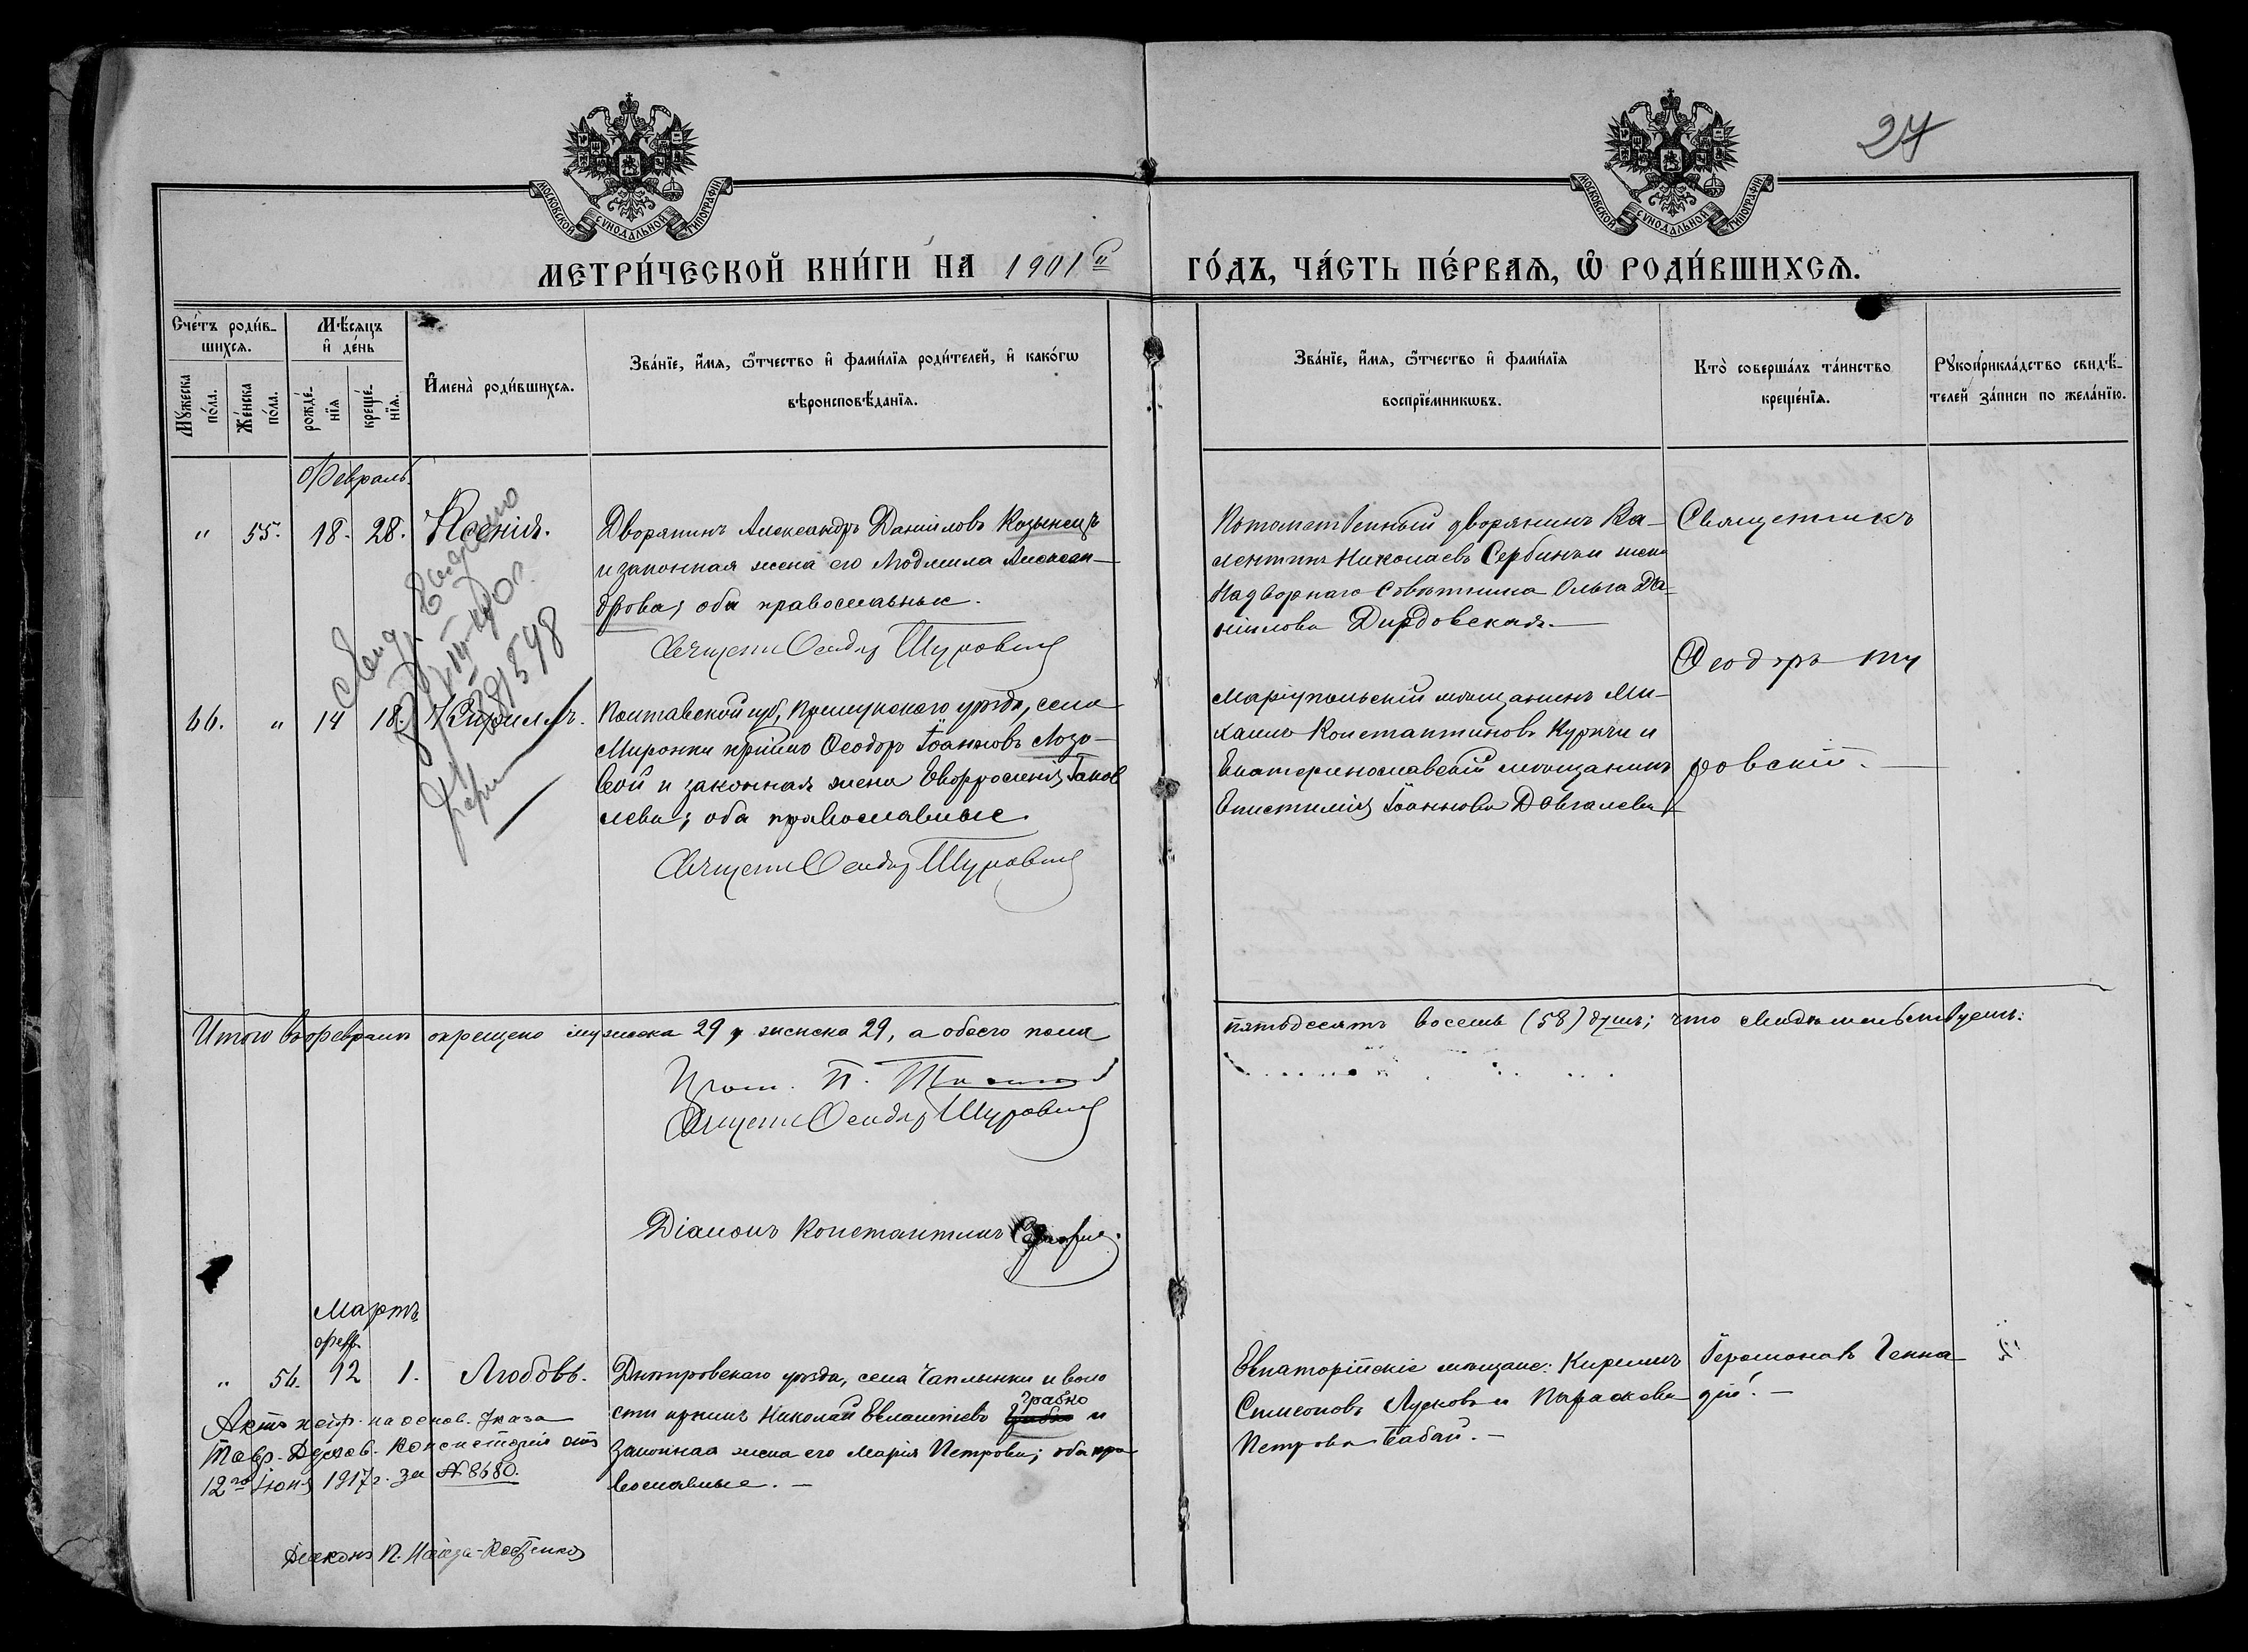 27
МОСКОВСКОЙ СѴНОДАЛЬНОЙ ТИПОГРАФІИ
МОСКОВСКОЙ СѴНОДАЛЬНОЙ ТИПОГРАФІИ
МЕТРИ́ЧЕСКОЙ КНИ́ГИ НА 1901й ГО́ДЪ, ЧА́СТЬ ПЕ́РВАѦ, Ѡ РОДИ́ВШИХСѦ.
Сче́тъ роди́в-
шихсѧ.
Мꙋ́жеска по́ла.
Же́нска по́ла.
Мѣ́сѧцъ и҆ де́нь
рожде́-нїѧ
креще́-нїѧ.
И҆мена̀ роди́вшихсѧ.
Зва́нїе, и҆́мѧ, ѻ҆́тчество и҆ фами́лїѧ роди́телей, и҆ како́гѡ
вѣроисповѣ́данїѧ.
Зва́нїе, и҆́мѧ, ѻ҆́тчество и҆ фами́лїѧ
воспрїе́мникѡвъ.
Кто̀ соверша́лъ та́инство
креще́нїѧ.
Рꙋкоприкла́дство свидѣ́-
телей за́писи по жела́нїю.
Февраль.
" 55. 18. 28. Ксенія.
Дворянинъ Александръ Даніиловъ Козынецъ
и законная жена его Людмила Алексан-
дрова; оба православные.
Священ Ѳеодоръ Шуровскій
Потомственный дворянинъ Ва-
лентинъ Николаевъ Сербинъ и жена
Надворнаго Совѣтника Ольга Да-
ніилова Дирдовская.
Священникъ
Ѳеодоръ Шу
ровскій.
66. " 14 18. Кириллъ.
Полтавской губ, Прилукскаго уѣзда, села
Миронки Ѳеодоръ Іоанновъ Лозо-
вой и законная жена Евфросинія Іаков
лева; оба православные.
Священ Ѳеодоръ Шуровскій
Маріупольскій мѣщанинъ Ми-
хаилъ Константиновъ и
Екатеринославскій мѣщанинъ
Епистимія Іоаннова Довгалева
381548
Итого въ февралѣ окрещено мужеска 29 и женска 29, а обоего пола
пятьдесятъ восемь (58) душъ; что свидѣтельствуемъ:
Прот. П.
Священ Ѳеодоръ Шуровскій
Діаконъ Константинъ
Мартъ
фев.
" 56. 12 1. Любовь.
Днѣпровскаго уѣзда, села Чаплынки и воло
сти Николай Евлампіевъ Грабко и
законная жена его Марія Петрова; оба пра
вославные.
Евпаторійскіе мѣщане: Кириллъ
Симеоновъ Лусковъ и Параскева
Петрова Бабай.
Іеромонахъ Генна
дій.
Актъ на основ. Указа
Тавр. Духов. Консисторіи отъ
12го Іюня 1917г. за № 8680.
Діаконъ П.